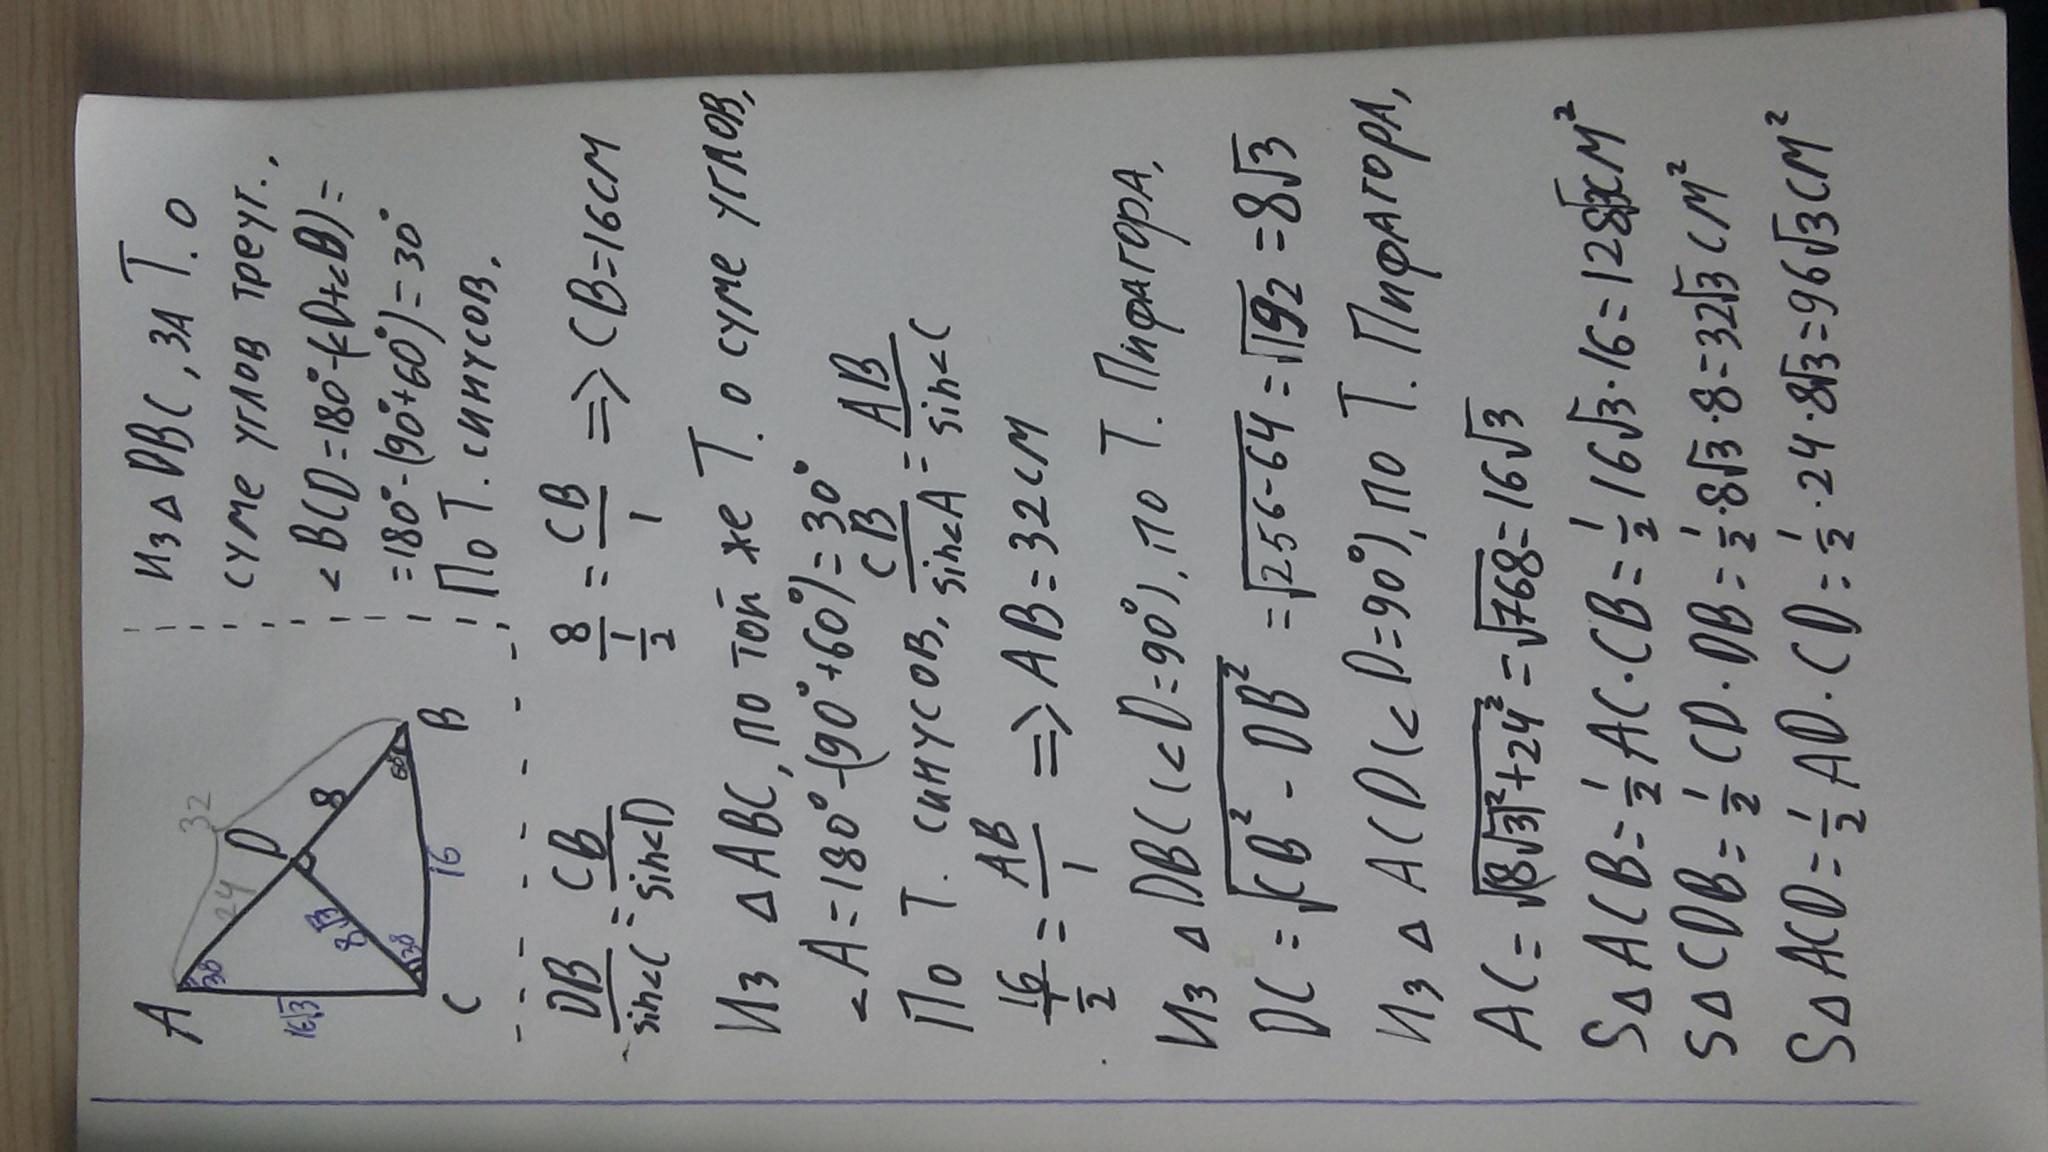 A
32
24
D
8
30
8√3
60°
B
16√3
30
16
C
Из Δ DBC, за Т. о
суме углов треуг.,
∠BCD=180°-(∠D+∠B)=
=180°-(90°+60°)=30°
По Т. синусов,
DB/sin∠C = CB/sin∠D 8/(1/2) = CB/1 => CB=16см
Из Δ ABC, по той же Т. о суме углов,
∠A=180°-(90°+60°)=30°
По Т. синусов, CB/sin∠A = AB/sin∠C
16/(1/2) = AB/1 => AB=32см
Из Δ DBC(∠D=90°), по Т. Пифагора,
DC=√(CB²-DB²) =√(256-64)=√192=8√3
Из Δ ACD(∠D=90°), по Т. Пифагора,
AC=√((8√3)²+24²)=√768=16√3
SΔACB=1/2 AC·CB=1/2 16√3·16=128√3см²
SΔCDB=1/2 CD·DB=1/2·8√3·8=32√3см²
SΔACD=1/2 AD·CD=1/2·24·8√3=96√3см²